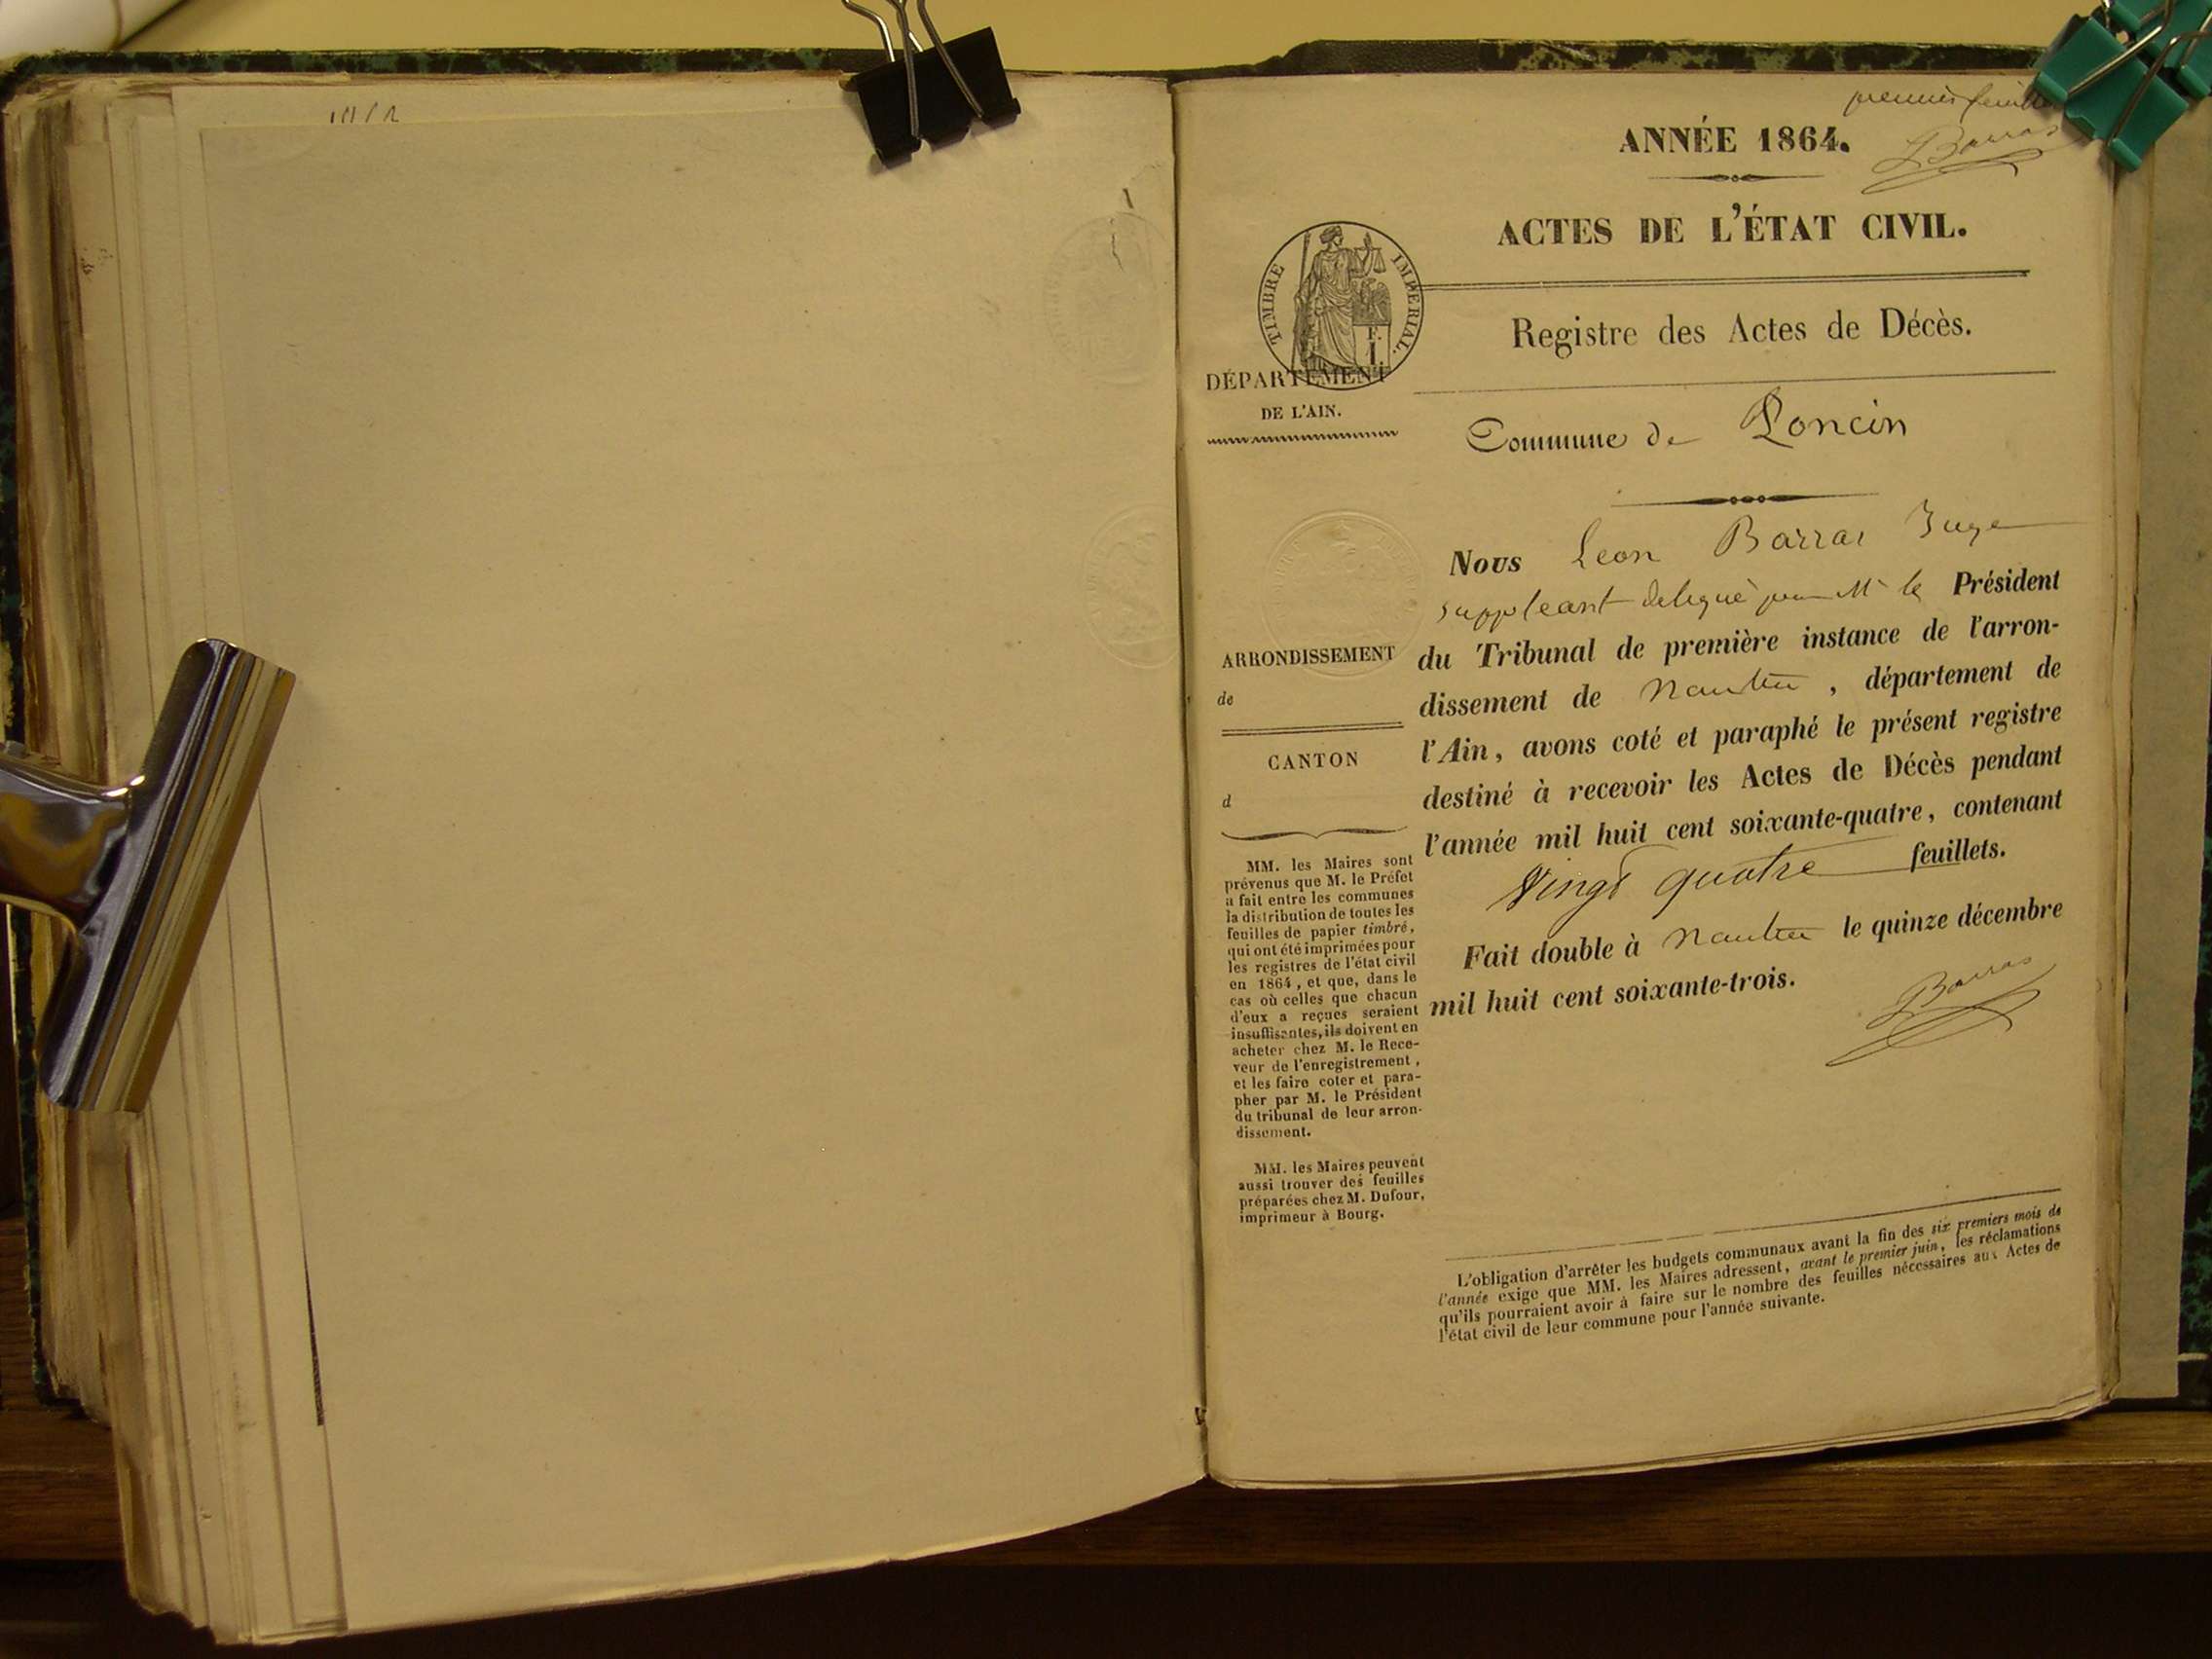 premier feuillet
Barras
ANNÉE 1864.
ACTES DE L'ÉTAT CIVIL.
TIMBRE IMPERIAL.
F.
I.
Registre des Actes de Décès.
DÉPARTEMENT
DE L'AIN.
Commune de Poncin
Nous Leon Barras Juge
suppleant delegué par Mr le Président
du Tribunal de première instance de l'arron-
dissement de Nantua, département de
l'Ain, avons coté et paraphé le présent registre
destiné à recevoir les Actes de Décès pendant
l'année mil huit cent soixante-quatre, contenant
Vingt quatre feuillets.
Fait double à Nantua le quinze décembre
mil huit cent soixante-trois.
Barras
ARRONDISSEMENT
de
CANTON
d
MM. les Maires sont
prévenus que M. le Préfet
a fait entre les communes
la distribution de toutes les
feuilles de papier timbré,
qui ont été imprimées pour
les registres de l'état civil
en 1864, et que, dans le
cas où celles que chacun
d'eux a reçues seraient
insuffisantes, ils doivent en
acheter chez M. le Rece-
veur de l'enregistrement,
et les faire coter et para-
pher par M. le Président
du tribunal de leur arron-
dissement.
MM. les Maires peuvent
aussi trouver des feuilles
préparées chez M. Dufour,
imprimeur à Bourg.
L'obligation d'arrêter les budgets communaux avant la fin des six premiers mois de
l'année exige que MM. les Maires adressent, avant le premier juin, les réclamations
qu'ils pourraient avoir à faire sur le nombre des feuilles nécessaires aux Actes de
l'état civil de leur commune pour l'année suivante.